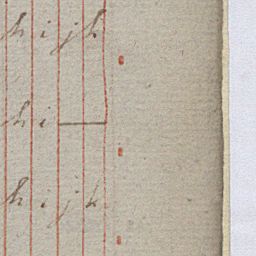 h i j k
h i —
h i j k